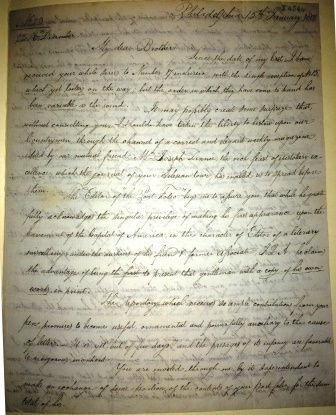 Philadelphia 15th January 1801
22 December
My dear Brother.
Since the date of my last, I have
received your whole series to Number 17 inclusive, with the single exception of No 15,
which yet loiters on the way, but the order in which they have come to hand has
been variable as the wind.
It may possibly create some surprize that,
without consulting you, I should have taken the liberty to bestow upon our
Countrymen, through the channel of a correct and elegant weekly magazine
edited by our mutual friend, Mr Joseph Dennie, the first
which the journal of your Silesian tour has enabled us to spread before
them.
The Editor of the Port Folio begs me to assure you, that while he grate-
fully acknowledges the singular privilege of making his first appearance upon the
pavement of the Capital of America in the character of Editor of a literary
under the auspices of his friend & former associate J. Q. A. he claims
the advantage of being the first to present that gentleman with a copy of his own
works, in print.
The repository which receives so ample contributions from your
pen, promises to become useful ornamental and powerfully auxiliary to the cause
of letters. It is but of few days, and the presages of its infancy are favorable
to vigorous manhood.
You are invited, through me, by its superintendant to
make an exchange of some portion of the contents of your Port folio, for the
of his.